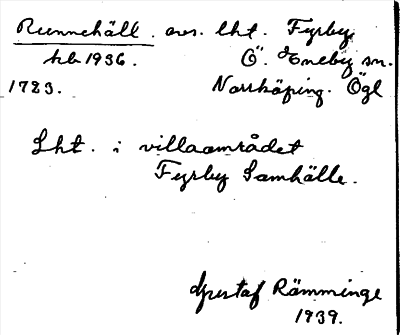 Runnehäll. avs. lht. Fyrby,
kb 1936. Ö. Eneby sn.
1783. Norrköping. Ögl
Lht. i villaområdet
Fyrby Samhälle.
Gustaf Rämminge
1939.